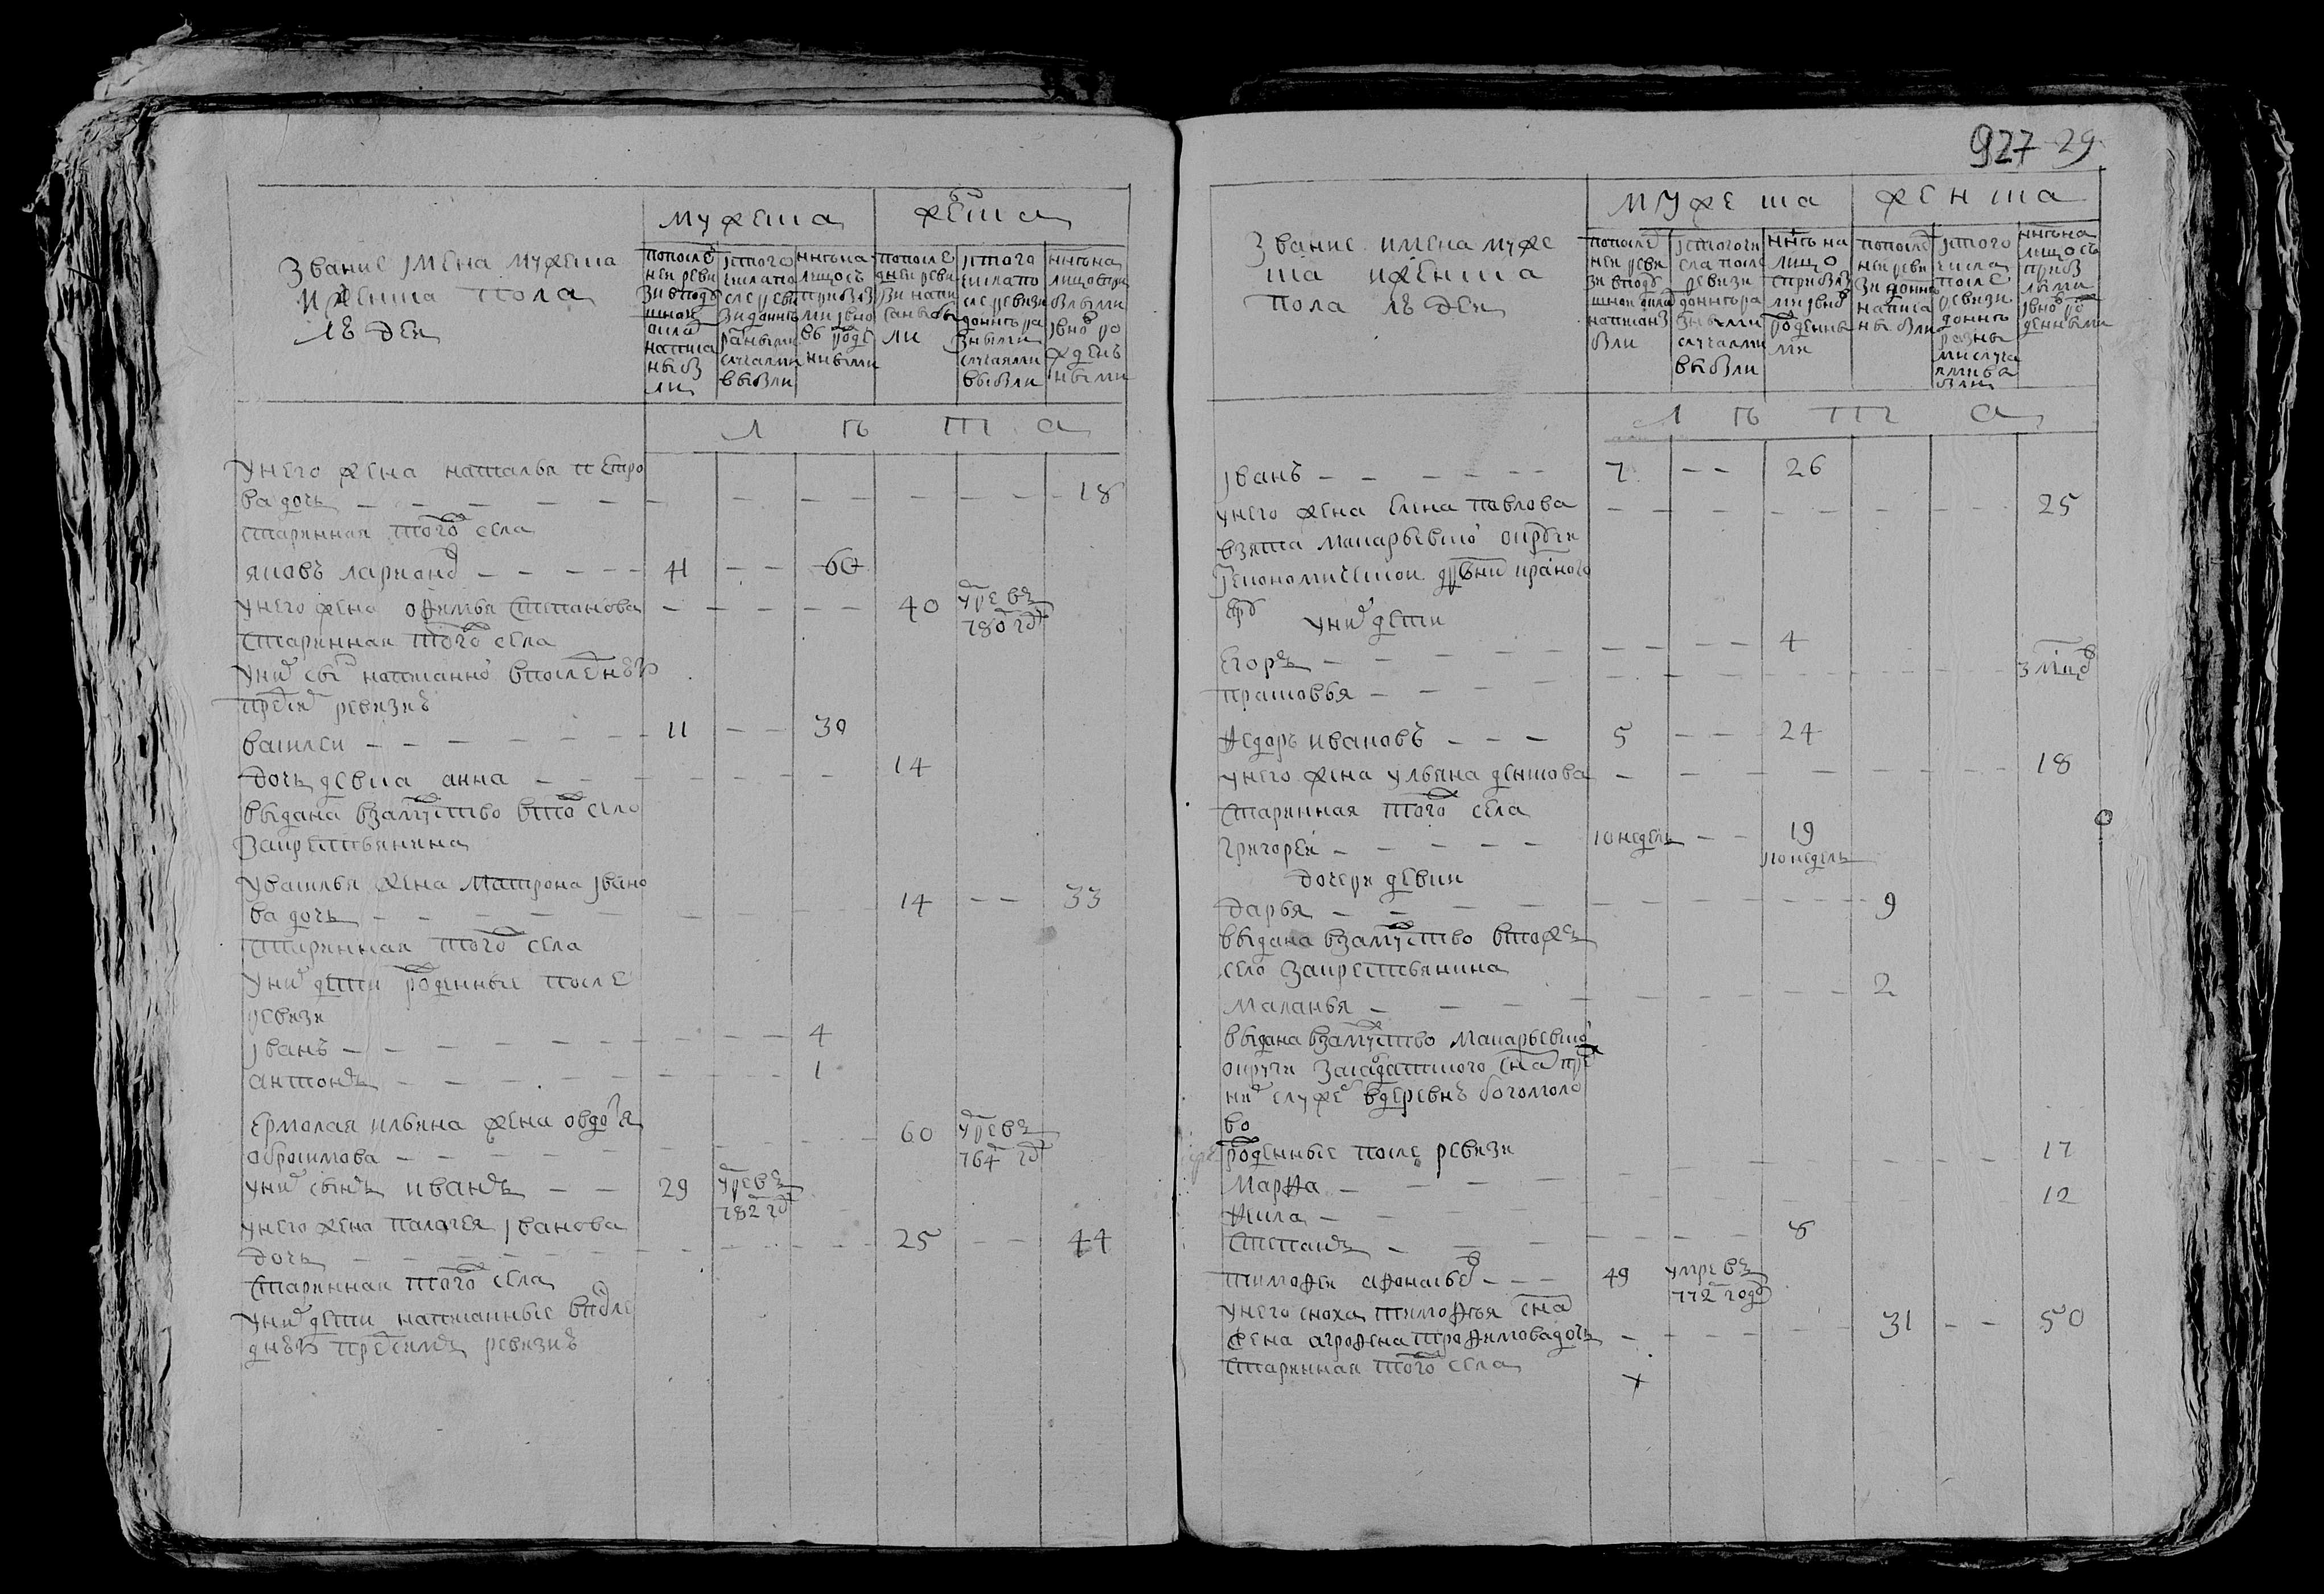 звание імена мужеска
и женска пола
лъ деи
мужеска
женска
попосле
ней реви
зи вподу
шной
окла
написа
ны бы
ли
іс того
числа по
сле реви
зи донне ра
зными
случаями
выбыли
нне на
лицо съ
прибы
ми івно
вь роже
нными
попосле
дней реви
зи напи
саны бы
ли
іс того
числа по
сле ревизи
донне ра
зными
случаями
выбыли
нне на
лицо спри
былыми
івно ро
жден
ными
л ѣ т а
унего жена наталья петро
ва дочь 18
старинная того села
яковъ ларионов 41 60
унего жена офимья степанова 40 умре въ
780 год
старинная того села
уних сын написанной впоследнѣю
пред сим ревизиѣ
василеи 11 30
дочь девка анна 14
выдана взамужство втож село
закрестьянина
увасилья жена матрона івано
ва дочь 14 33
старинная того села
уних дети рожденные после
ревизи
іванъ 4
антонъ 1
ермолая ильина жена овдотя
обросимова 60 умре въ
764 год
уних сынъ иванъ 29 умре въ
782 год
унего жена палагея іванова
дочь 25 44
старинная того села
уних дети написанные впосле
днѣю пред симъ ревизиѣ
927 29
звание имена муже
ска иженска
пола лъ деи
мужеска
женска
попосле
ней реви
зи вподу
шной оклад
написаны
были
іс того чи
сла после
ревизи
донне ра
зными
случаями
выбыли
ннѣ на
лицо
сприбылы
ми івнов
рожденны
ми
попослед
ней реви
зи донне
написа
ны были
іс того
числа
после
ревизи
донне
разны
ми случа
ями вы
были
нне на
лицо съ
прибы
лыми
івнов ро
жденными
л ѣ т а
іванъ 7 26
унего жена елена павлова 25
взята макарьевской округи
економической дрвни краного
уних дети
егоръ 4
прасковья 3 мсцов
федоръ ивановъ 5 24
унего жена ульяна денисова 18
старинная того села
григорей 10 недель 19
10 недель
дочери девки
дарья 9
выдана взамужство втожъ
село закрестьянина
маланья 2
выдана взамужство макарьевской
округи засолдатского сна при
них служе вдеревнѣ богомоло
во
рожденные после ревизи
марфа 17
фекла 12
степанъ 8
тимофей афонасьев 49 умре въ
772 году
унего сноха тимофѣя сна
жена агрофена трофимова дочь 31 50
старинная того села